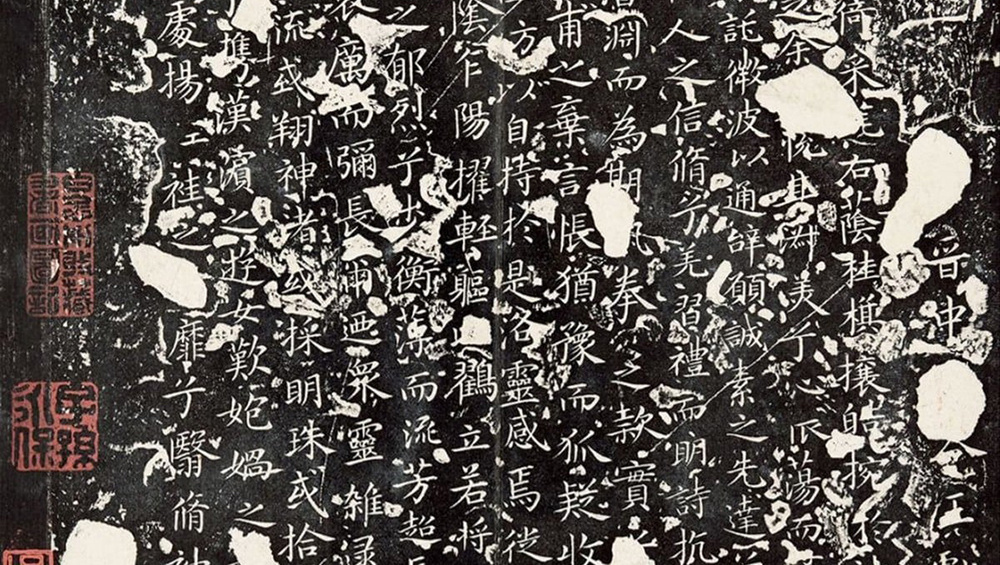 晋中令王
倚采旄右蔭桂旗攘皓捥於
之余悅其淑美兮心振蕩而
託微波以通辞願誠素之先達
人之信脩兮羌習禮而明詩抗
淵而為期執拳之款實
甫之棄言悵猶豫而狐疑收
方以自持於是洛靈感焉徙
陰乍陽擢輕軀鶴立若將
之郁烈兮步衡薄而流芳超
厲而彌長爾迺衆靈雜
流或翔神渚或採明珠或拾
攜漢濱之遊女歎媧之
處揚袿之靡兮翳脩
子孫永保